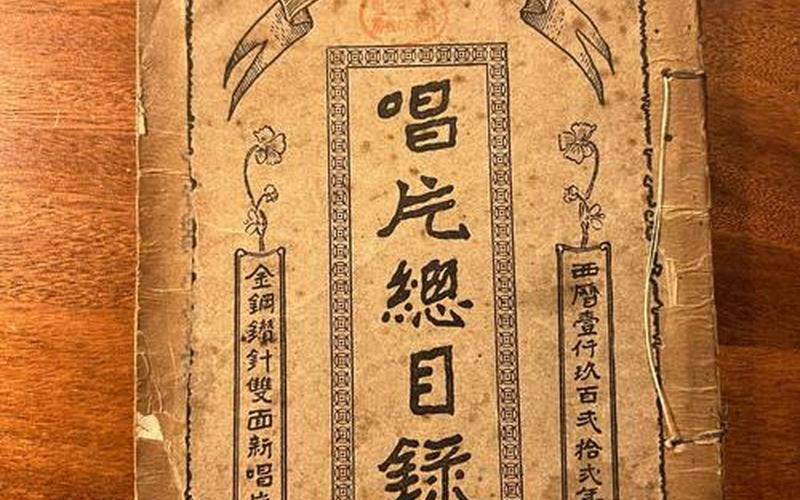 西曆壹仟玖百弍拾弍年
唱片總目錄
金鋼鑽針雙面新唱片